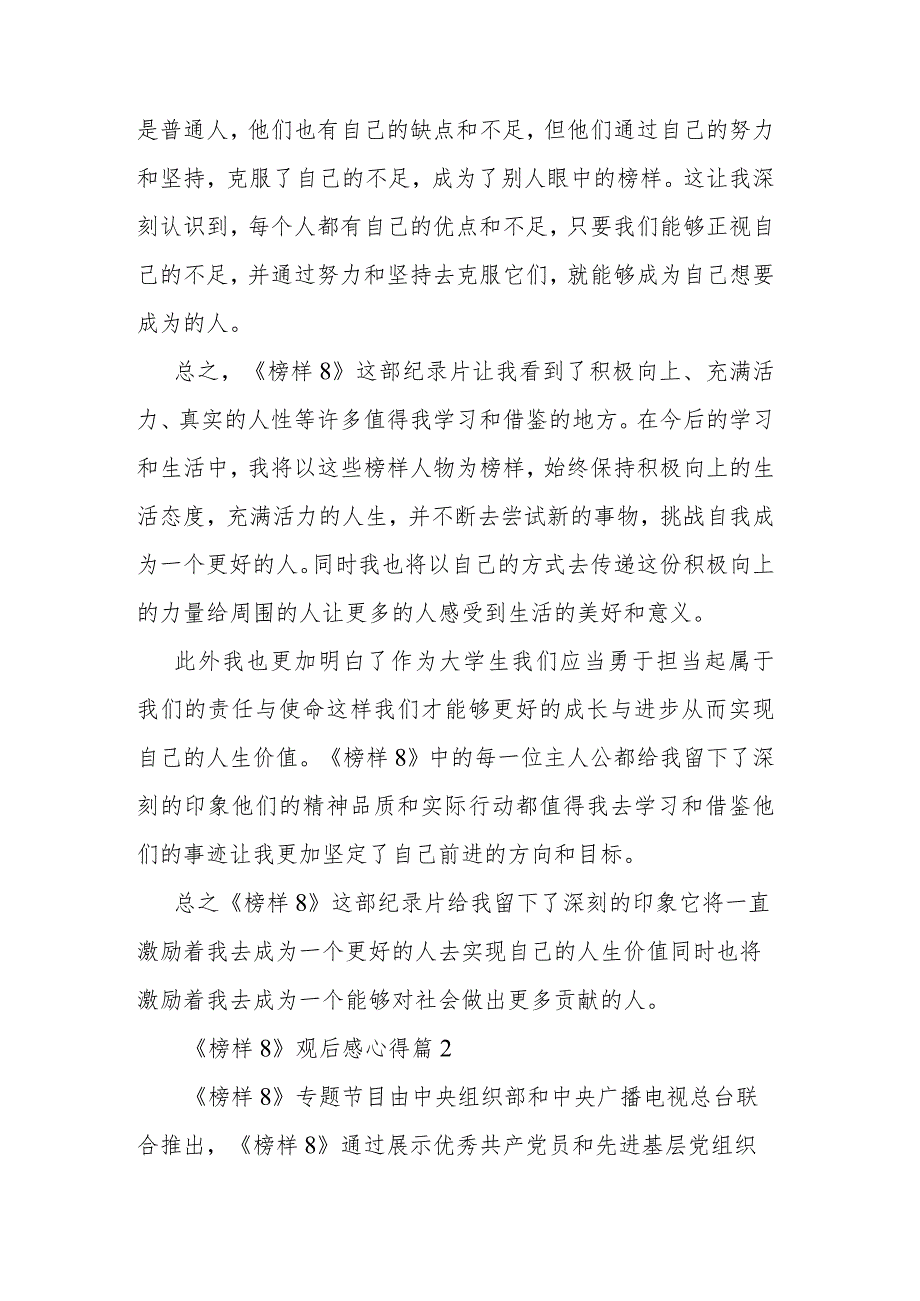 是普通人，他们也有自己的缺点和不足，但他们通过自己的努力
和坚持，克服了自己的不足，成为了别人眼中的榜样。这让我深
刻认识到，每个人都有自己的优点和不足，只要我们能够正视自
己的不足，并通过努力和坚持去克服它们，就能够成为自己想要
成为的人。
总之，《榜样8》这部纪录片让我看到了积极向上、充满活
力、真实的人性等许多值得我学习和借鉴的地方。在今后的学习
和生活中，我将以这些榜样人物为榜样，始终保持积极向上的生
活态度，充满活力的人生，并不断去尝试新的事物，挑战自我成
为一个更好的人。同时我也将以自己的方式去传递这份积极向上
的力量给周围的人让更多的人感受到生活的美好和意义。
此外我也更加明白了作为大学生我们应当勇于担当起属于
我们的责任与使命这样我们才能够更好的成长与进步从而实现
自己的人生价值。《榜样8》中的每一位主人公都给我留下了深
刻的印象他们的精神品质和实际行动都值得我去学习和借鉴他
们的事迹让我更加坚定了自己前进的方向和目标。
总之《榜样8》这部纪录片给我留下了深刻的印象它将一直
激励着我去成为一个更好的人去实现自己的人生价值同时也将
激励着我去成为一个能够对社会做出更多贡献的人。
《榜样8》观后感心得篇2
《榜样8》专题节目由中央组织部和中央广播电视总台联
合推出，《榜样8》通过展示优秀共产党员和先进基层党组织